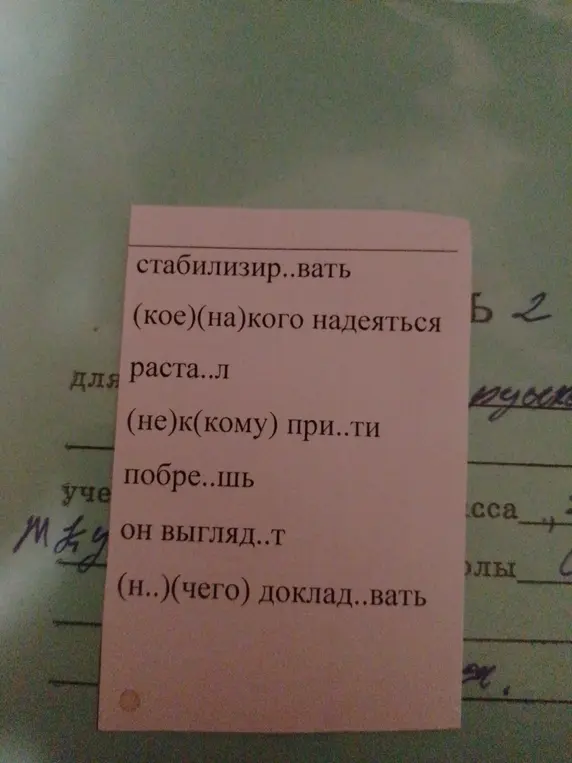 стабилизир..вать
(кое)(на)кого надеяться
Ь 2
раста..л
для
(не)к(кому) при..ти
побре..шь
уче
сса
он выгляд..т
олы
(н..)(чего) доклад..вать